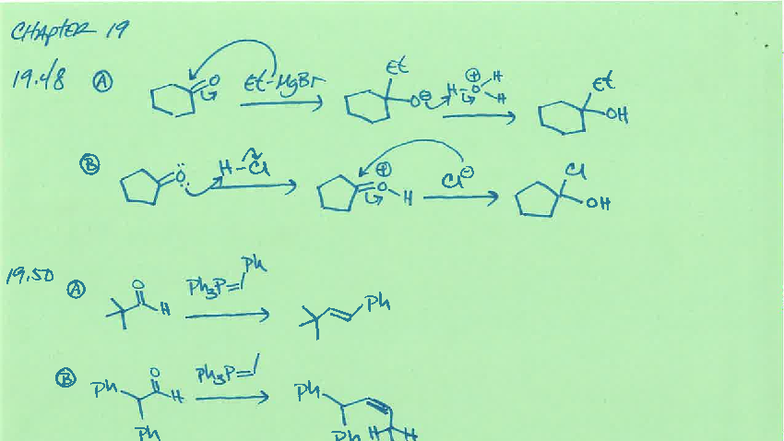 CHAPTER 19
19.48 A O Et-MgBr Et O⊖ H-O⊕ H H Et OH
B Ö: H-Cl ⊕ O H Cl⊖ Cl OH
19.50 A O H Ph3P= Ph Ph
B Ph O H Ph Ph3P= Ph Ph H H